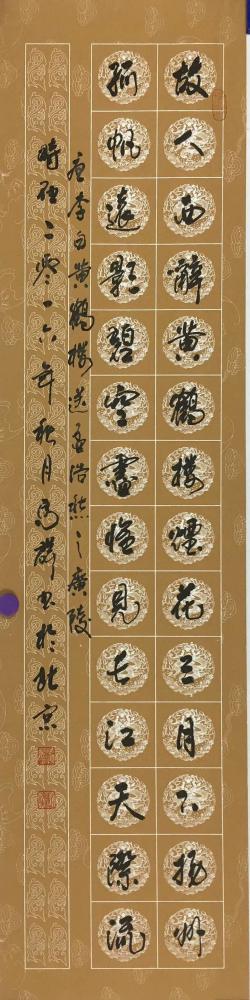 故人西辭黄鶴樓煙花三月下揚州
孤帆遠影碧空盡惟見長江天際流
唐李白黄鶴樓送孟浩然之廣陵
時在二零一六年秋月
書於北京